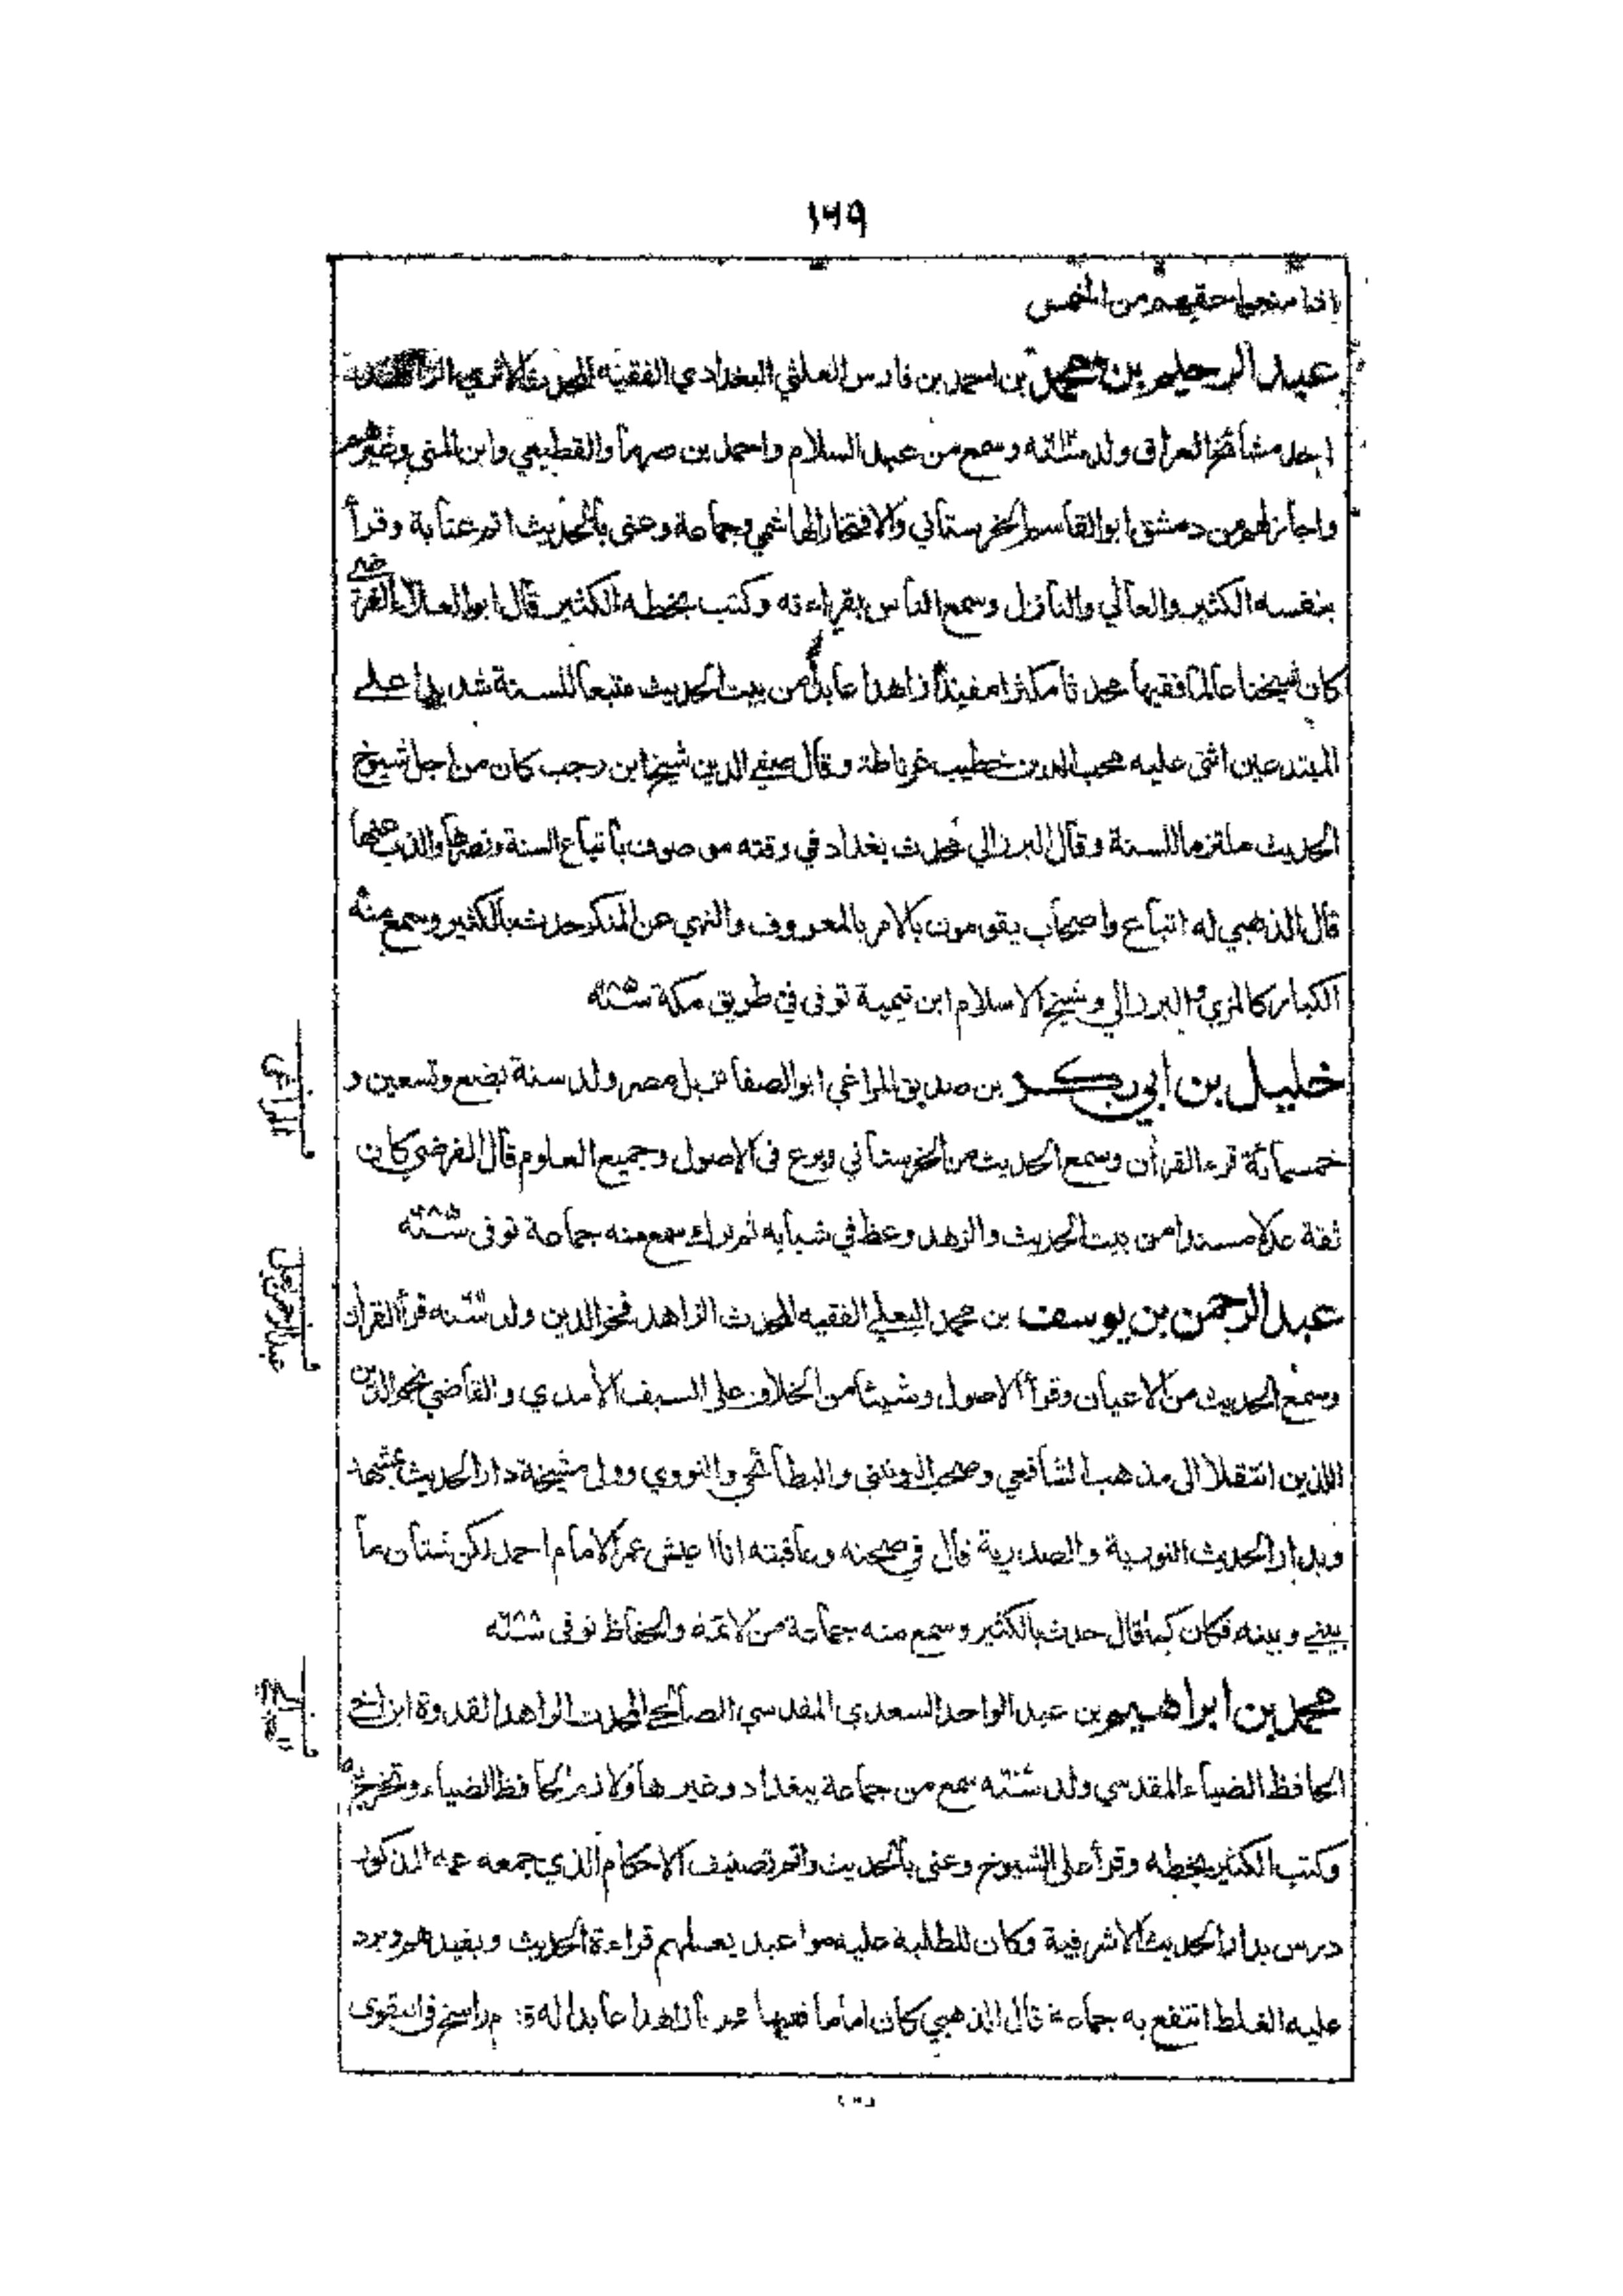 ١٦٩
إذا منعوا حقهم من الخمس
عبد الرحيم بن محمد بن احمد بن فارس العلثي البغدادي الفقيه المحدث الاثري الزاهد
احد مشائخ العراق ولد سنة وسمع من عبد السلام واحمد بن صرما والقطيعي وابن المني وغيرهم
واجاز لهم من دمشق ابو القاسم الخرستاني والافتخار الهاشمي وجماعة وعنى بالحديث اتم عناية وقرأ
بنفسه الكثير والعالي والنازل وسمع الناس بقراءته وكتب بخطه الكثير قال ابو العلاء الفرضي
كان شيخنا عالما فقيها محدثا مكثرا مفيدا زاهدا عابدا من بيت الحديث متبعا للسنة شديدا على
المبتدعين اثنى عليه محب الدين خطيب غرناطة وقال صفي الدين شيخ ابن رجب كان من اجل شيوخ
الحديث ملتزما للسنة وقال البرزالي محدث بغداد في وقته موصوف بأتباع السنة ونصرها والذب عنها
قال الذهبي له اتباع واصحاب يقومون بالامر بالمعروف والنهي عن المنكر حدث بالكثير وسمع منه
الكبار كالمزي والبرزالي وشيخ الاسلام ابن تيمية توفى في طريق مكة
خليل بن ابي بكر بن صديق المراغي ابو الصفا نزيل مصر ولد سنة بضع وتسعين و
خمسمائة قرء القرآن وسمع الحديث من الخرستاني وبرع فى الاصول وجميع العلوم قال الفرضي كان
ثقة عدلا مسندا من بيت الحديث والزهد وعظ في شبابه ثم ترك سمع منه جماعة توفى
عبد الرحمن بن يوسف بن محمد البعلي الفقيه المحدث الزاهد فخر الدين ولد قرأ القرآن
وسمع الحديث من الاعيان وقرأ الاصول وشيئا من الخلاف على السيف الأمدي والقاضي نجم الدين
اللذين انتقلا الى مذهب الشافعي وصحب اليونيني والبطائحي والنووي وولى مشيخة دار الحديث بمشهد
وبدار الحديث النورية والصدرية قال في صحته وعافيته انا اعيش عمر الامام احمد لكن شتان ما
بيني وبينه فكان كما قال حدث بالكثير وسمع منه جماعة من الائمة والحفاظ توفى
محمد بن ابراهيم بن عبد الواحد السعدي المقدسي الصالحي المحدث الزاهد القدوة ابن اخي
الحافظ الضياء المقدسي ولد سمع من جماعة ببغداد وغيرها ولازم الحافظ الضياء وتخرج به
وكتب الكثير بخطه وقرأ على الشيوخ وعنى بالحديث واتم تصنيف الاحكام الذي جمعه عمه المذكور
درس بدار الحديث الاشرفية وكان للطلبة عليه مواعيد يعلمهم قراءة الحديث ويفيدهم ويرد
عليه الغلط انتفع به جماعة قال الذهبي كان اماما فقيها محدثا زاهدا عابدا له قدم راسخ فى التقوى
المراغي
عبد الرحمن بعلي